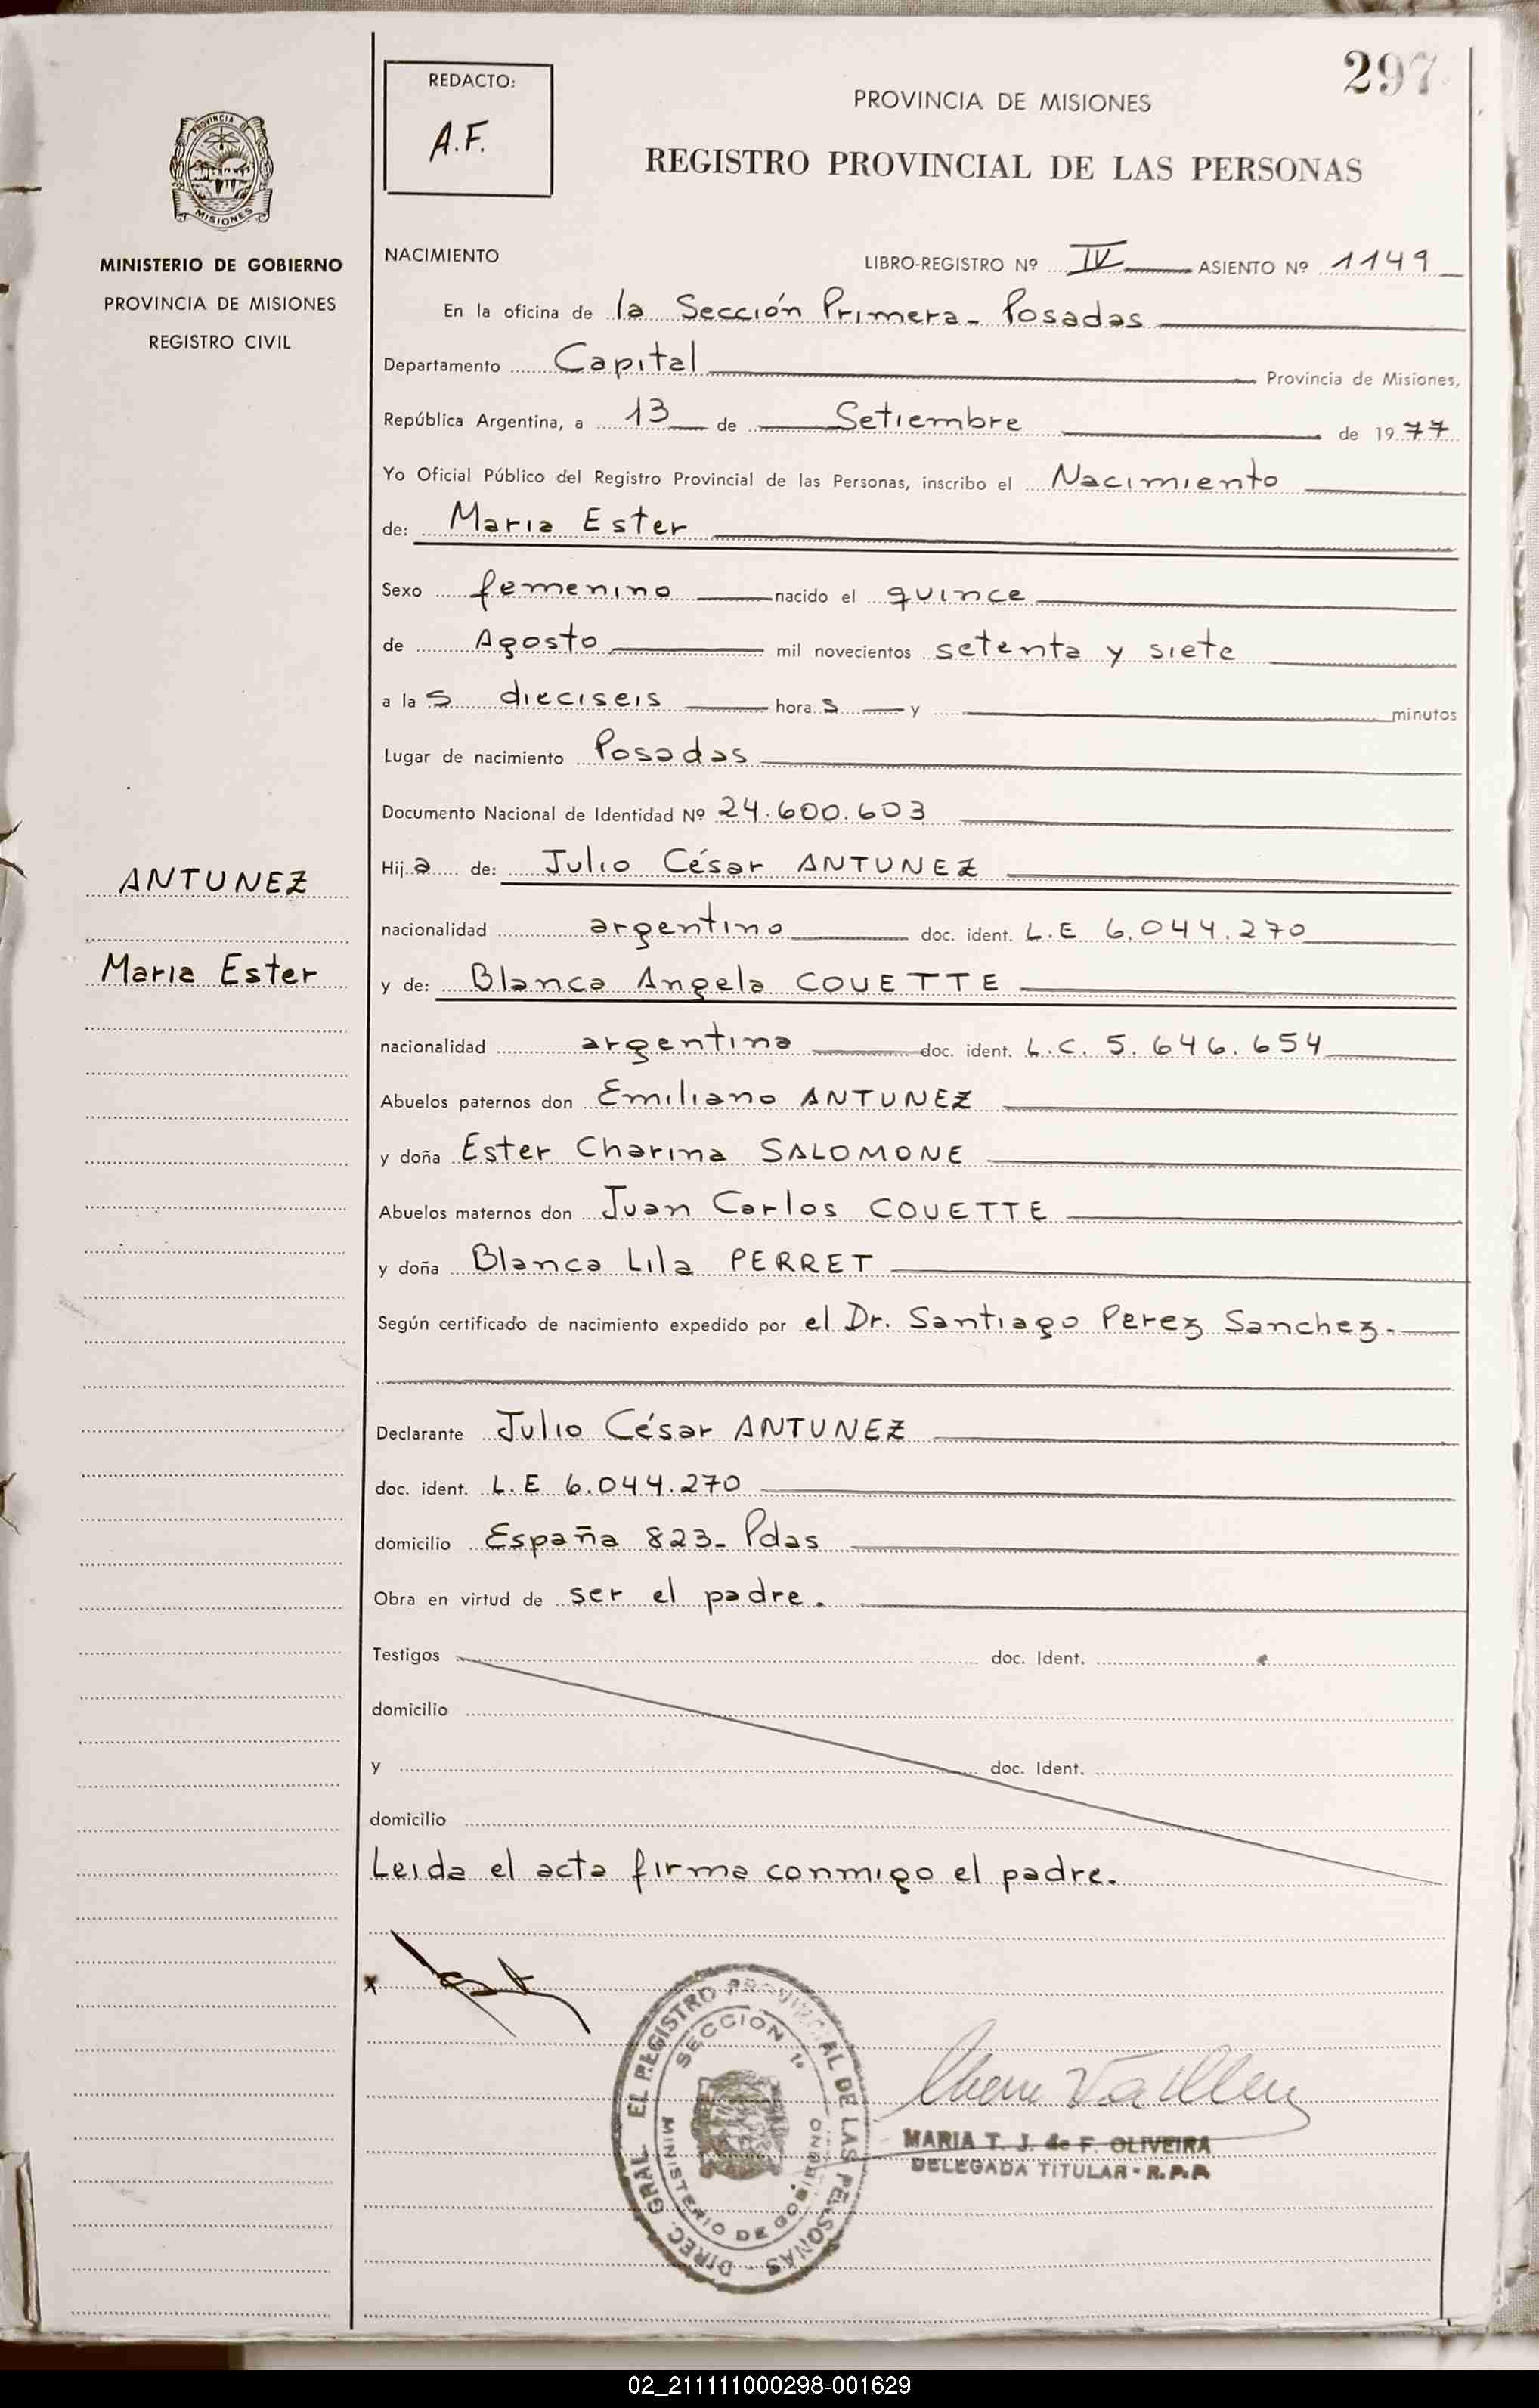 297
REDACTO:
A.F.
PROVINCIA DE MISIONES
REGISTRO PROVINCIAL DE LAS PERSONAS
PROVINCIA D
MISIONES
MINISTERIO DE GOBIERNO
PROVINCIA DE MISIONES
REGISTRO CIVIL
NACIMIENTO
LIBRO-REGISTRO Nº IV ASIENTO Nº 1149
En la oficina de la Sección Primera - Posadas
Departamento Capital Provincia de Misiones,
República Argentina, a 13 de Setiembre de 1977
Yo Oficial Público del Registro Provincial de las Personas, inscribo el Nacimiento
de: Maria Ester
Sexo femenino nacido el quince
de Agosto mil novecientos setenta y siete
a las dieciseis horas y minutos
Lugar de nacimiento Posadas
Documento Nacional de Identidad Nº 24.600.603
ANTUNEZ
Maria Ester
Hija de: Julio César ANTUNEZ
nacionalidad argentino doc. ident. L.E 6.044.270
y de: Blanca Angela COUETTE
nacionalidad argentina doc. ident. L.C. 5.646.654
Abuelos paternos don Emiliano ANTUNEZ
y doña Ester Charina SALOMONE
Abuelos maternos don Juan Carlos COUETTE
y doña Blanca Lila PERRET
Según certificado de nacimiento expedido por el Dr. Santiago Perez Sanchez.
Declarante Julio César ANTUNEZ
doc. ident. L.E 6.044.270
domicilio España 823- Pdas
Obra en virtud de ser el padre.
Testigos doc. Ident.
domicilio
y doc. Ident.
domicilio
Leida el acta firma conmigo el padre.
x
DIREC. GRAL. EL REGISTRO PROVINCIAL DE LAS PERSONAS
SECCION 1ª
MINISTERIO DE GOBIERNO
MARIA T. J. de F. OLIVEIRA
DELEGADA TITULAR - R.P.P.
02_211111000298-001629